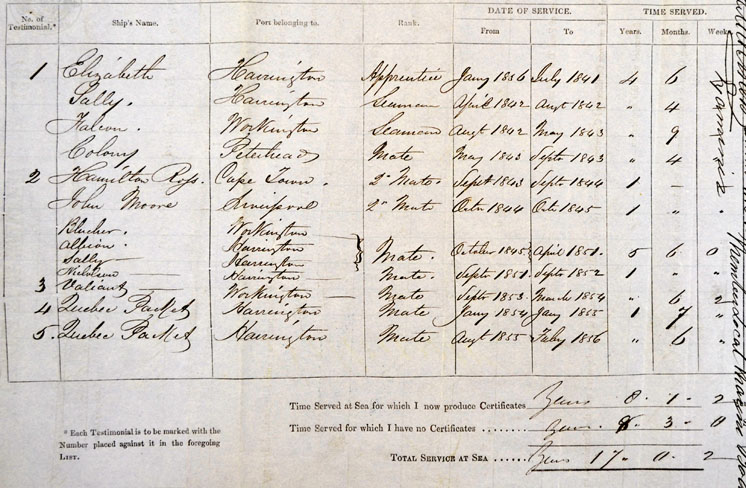 No. of Testimonial.* Ship's Name. Port belonging to. Rank. DATE OF SERVICE. TIME SERVED.
From To Years. Months. Week
1 Elizabeth Harrington Apprentice Jany 1836 July 1841 4 6
Sally. Harrington Seaman April 1842 Augt 1842 " 4
Falcon. Workington Seaman Augt 1842 May 1843 " 9
Colony Peterhead Mate May 1843 Septr 1843 " 4
2 Hamilton Ross. Cape Town. 2nd Mate. Septr 1843 Septr 1844 1 –
John Moore Liverpool 2nd Mate Octr 1844 Octr 1845 1 " "
Blucher. Workington
Albion. Harrington Mate. October 1845 April 1851. 5 6 0
Sally Harrington
Nicholson Harrington Mate. Septr 1851. Septr 1852 1 " "
3 Valiant Workington Mate Septr 1853. March 1854 " 6 2
4 Quebec Packet Harrington Mate Jany 1854 Jany 1855 1 7 "
5. Quebec Packet Harrington Mate Augt 1855 Feby 1856 " 6 "
Time Served at Sea for which I now produce Certificates Years 8 . 1 . 2
Time Served for which I have no Certificates Years . 8 . 3 . 0
TOTAL SERVICE AT SEA Years 17 . 0 . 2
* Each Testimonial is to be marked with the
Number placed against it in the foregoing
LIST.
Local Marine